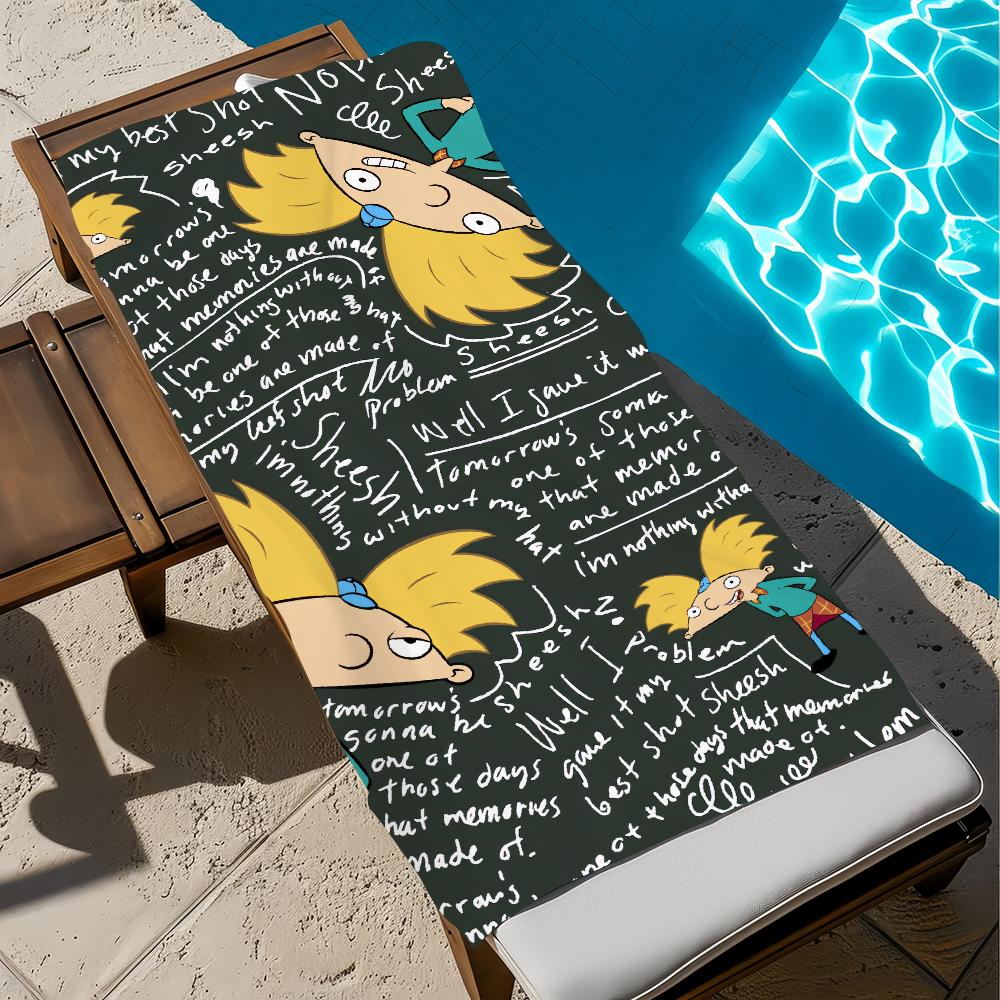 my best shot Nop
sheesh
Shees
omorrows
nna be one
of those days
hat memories are made of
I'm nothing without my hat
be one of those
ories are made of
my best shot
No
Problem
Sheesh
Sheesh
I'm nothing
without my hat
Well I gave it
Tomorrow's gonna
one of those
that memor
are made o
i'm nothing witho
tomorrow's
gonna be
one of
those days
hat memories
made of.
rrow's
nna
Sheesh
No
Problem
Well I
gave it my
best shot Sheesh
those days that memories
made of
ne of
I am